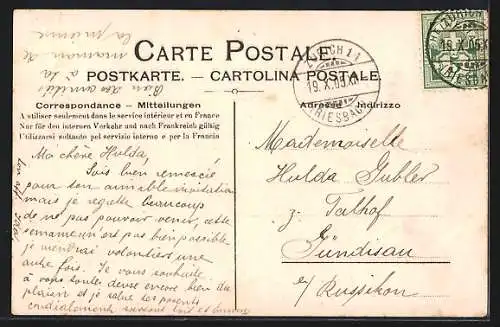 CARTE POSTALE
POSTKARTE. — CARTOLINA POSTALE.
Correspondance — Mitteilungen
A utiliser seulement dans le service intérieur et en France
Nur für den internen Verkehr und nach Frankreich gültig
Utilizzarsi soltando pel servizio interno e per la Francia
Adresse Indirizzo
ZÜRICH 11
19.X.05.
(RIESBACH)
19.X.05.
RIESBACH
Ma chère Hulda,
Sois bien remerciée
pour ton aimable invitation
mais je regrette beaucoup
de ne pas pouvoir venir, cette
semaine n'est pas bien possible
je viendrai volontiers une
autre fois. Je vous souhaite
à vous toute deux encore bien du
plaisir et je salue tes parents
cordialement
Bien des amitiés
à ta
maman de
la mienne
Mademoiselle
Hulda Gubler
z. Talhof
Gündisau
b/ Russikon